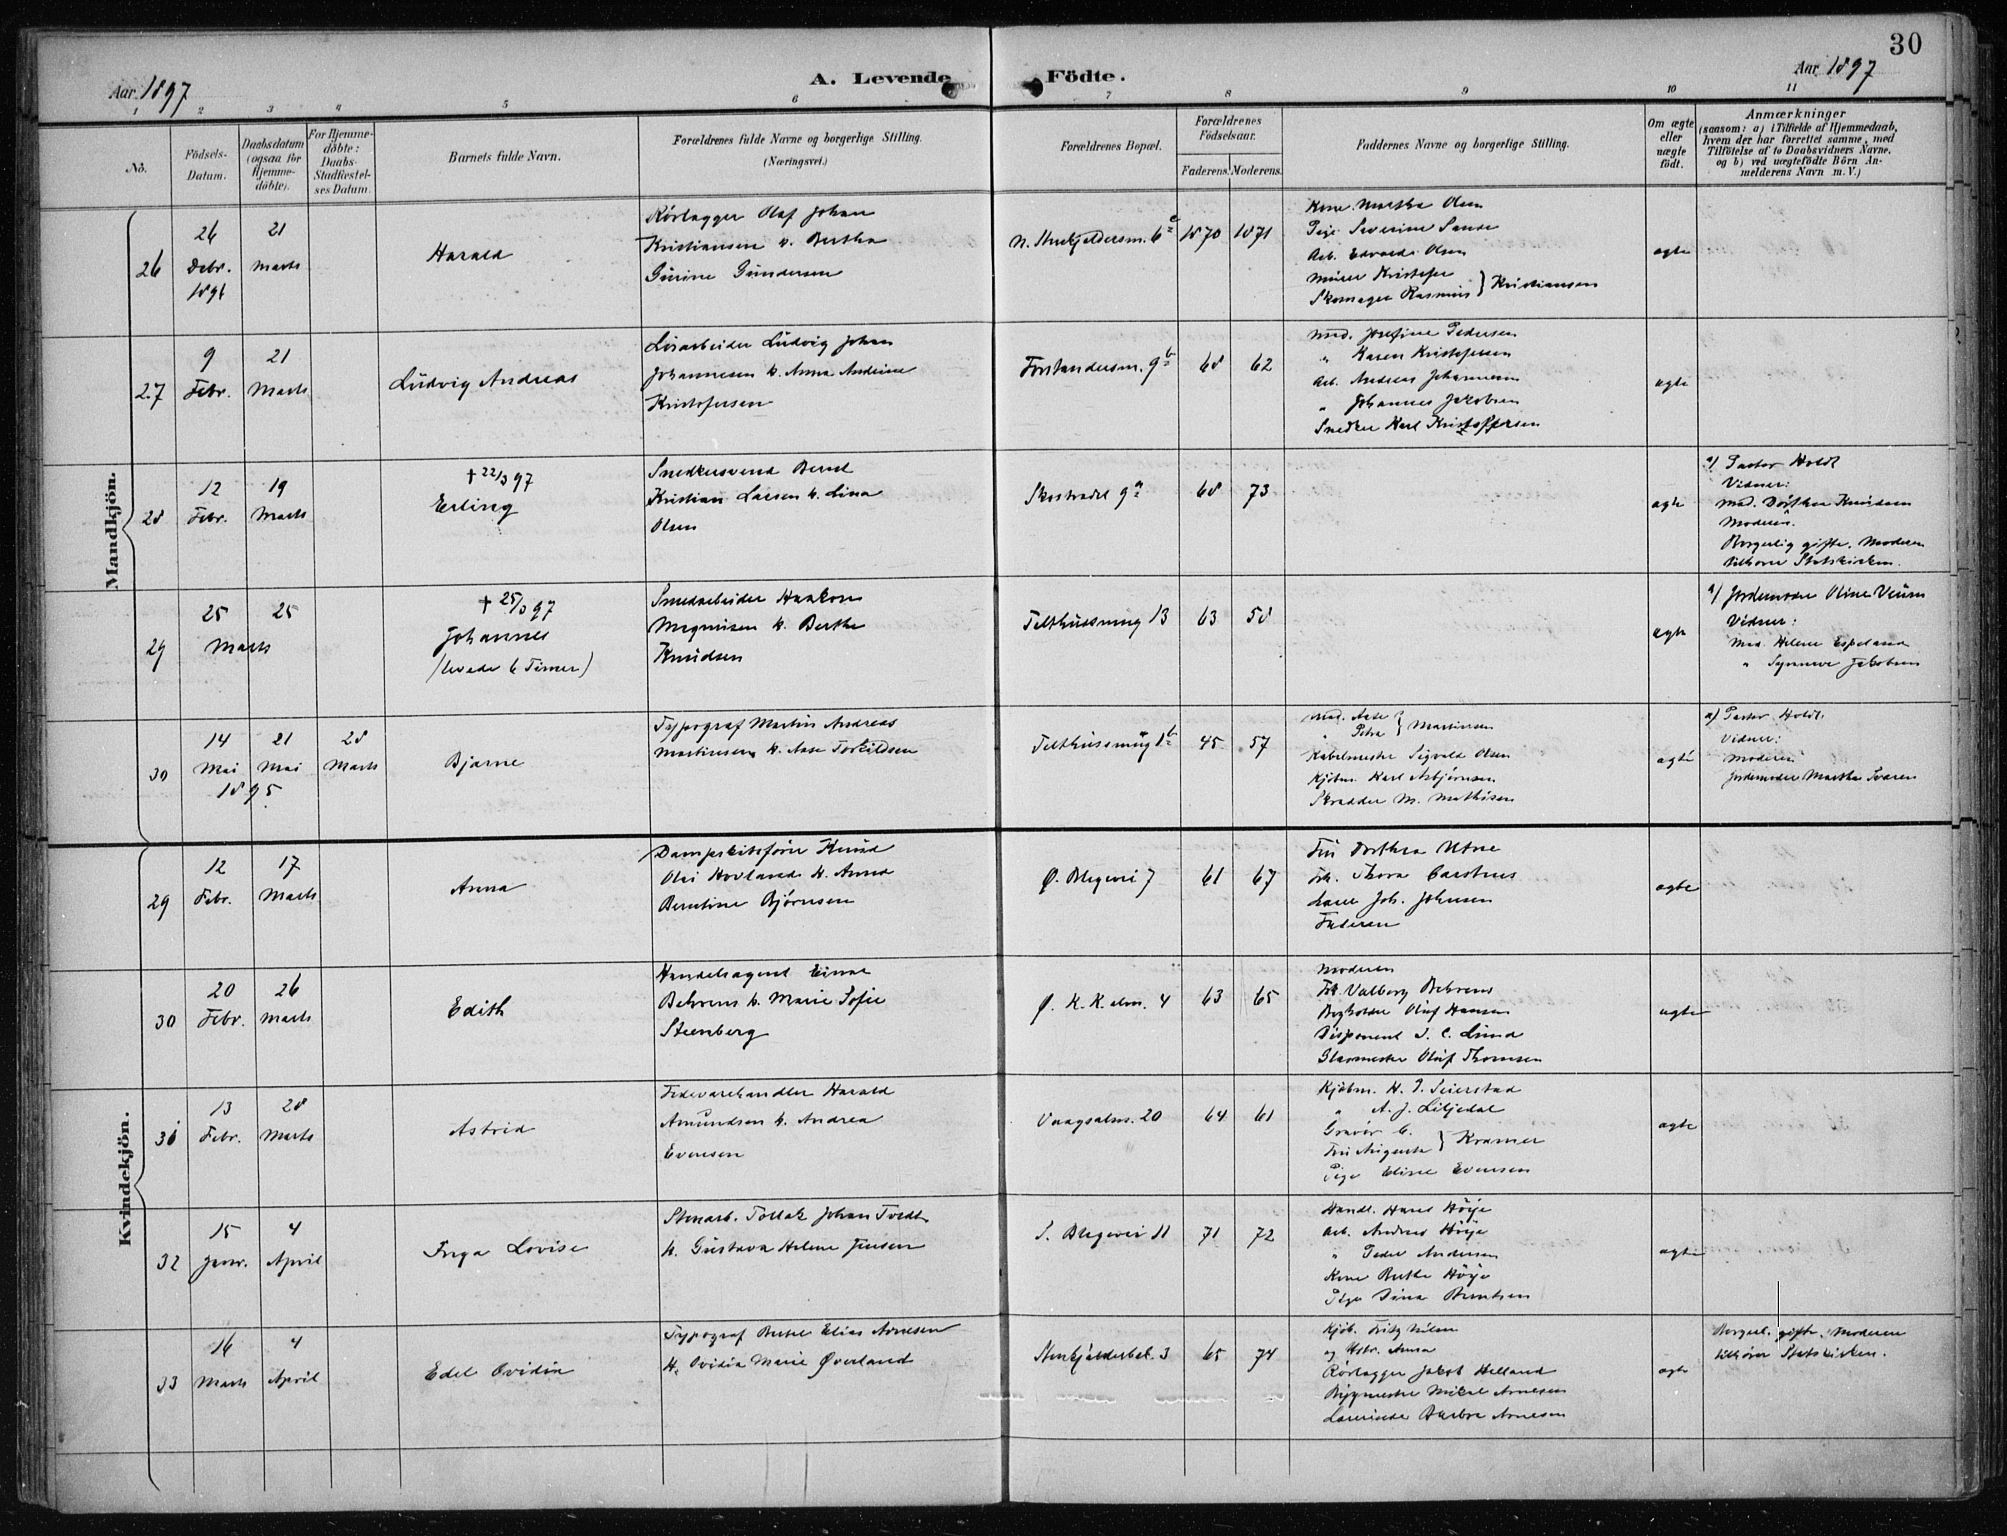 30
Aar 1897
A. Levende Födte.
Aar 1897
1 2 3 4 5 6 7 8 9 10 11
No.
Födsels-Datum.
Daabsdatum (ogsaa for Hjemme-döbte).
For Hjemme-döbte: Daabs-Stadfæstel-ses Datum.
Barnets fulde Navn.
Forældrenes fulde Navne og borgerlige Stilling.
(Næringsvei.)
Forældrenes Bopæl.
Forældrenes Födselsaar.
Faderens. Moderens.
Faddernes Navne og borgerlige Stilling.
Om ægte eller uægte födt.
Anmærkninger
(saasom: a) i Tilfælde af Hjemmedaab, hvem der har forrettet samme, med Tilföielse af to Daabsvidners Navne, og b) ved uægtefödte Börn An-melderens Navn m. V.)
Mandkjön.
26
26 Debr. 1896
21 Marts
Harald
Rörlægger Olaf Johan
Kristiansen & Bertha
Gurine Gundersen
N. Stenkjeldersm. 6
1870 1871
Kone Martha Olsen
Pige Severine Sande
Arb. Edvard Olsen
Murer Kristofer
Skomager Rasmus } Kristiansen
ægte
27
9 Febr.
21 Marts
Ludvig Andreas
Løsarbeider Ludvig Johan
Johannesen & Anna Andrine
Kristofersen
Forstandersm. 9 b
68 62
Mad. Josefine Pedersen
" Karen Kristofersen
Arb. Andreas Johannesen
" Johannes Jakobsen
Snedker Karl Kristoffersen
ægte
28
12 Febr.
19 Marts
† 22/3 97
Erling
Snedkersvend Bernt
Kristian Larsen & Lina
Olsen
Skostrædet 9 a
68 73
ægte
a/ Pastor Holdt
Vidner:
Mad. Dorthea Knudsen
Moderen.
Borgerlig gifte. Moderen
tilhører Statskirken.
29
25 25
Marts
† 25/3 97
Johannes
(levede 6 Timer)
Smedarbeider Haakon
Magnusen & Berthe
Knudsen
Telthussmug 13
63 58
ægte
a/ Jordemoder Oline Veum
Vidner:
Mad. Helene Espeland
" Synneve Jakobsen
30
14 Mai
21 Mai
1895.
28 Marts
Bjarne
Typograf Martin Andreas
Martinsen & Aase Torkildsen
Telthussmug 1 b
45 57
Mad. Aase
" Petra } Martinsen
Kabelmester Sigvald Olsen
Kjøbm. Karl Asbjørnsen
Skrædder M. Mathisen
ægte
a) Pastor Holdt.
Vidner:
Moderen
Jordemoder Martha Svaren
Kvindekjön.
29
12 Febr.
17 Marts
Anna
Dampskibsfører Knud
Olai Hovland & Anna
Berntine Bjørnsen
Ø. Blegevei 7
61 67
Fru Dorthea Utne
Frk. Thora Carstens
Joh. Johnsen
Faderen
ægte
30
20 Febr.
26 Marts
Edith
Handelsagent Einar
Behrens & Marie Sofie
Steenberg
Ø. K. Kalm. 4
63 65
Moderen
Frk. Valborg Behrens
Bogholder Oluf Hansen
Disponent J. C. Lund
Glasmester Oluf Thomsen
ægte
31
13 Febr.
28 Marts
Astrid
Fedevarehandler Harald
Amundsen & Andrea
Evensen
Vaagsalm. 20
64 61
Kjøbm. H. J. Seierstad
" A. J. Liljedal
Gravør C.
Fru Augusta } Kramer
Pige Eline Evensen
ægte
32
15 Janr.
4 April
Inga Lovise
Stenarb. Tollak Johan Tvedt
& Gustava Helene Jensen
S. Blegevei 11
71 72
Handl. Hans Høije
Arb. Andreas Høije
" Peder Andersen
Kone Berthe Høije
Pige Dina Berntsen
ægte
33
16 Marts
4 April
Edel Ovidia
Typograf Bertel Elias Arnesen
& Ovidia Marie Øverland
Stenkjælderbak. 3
65 74
Kjøb. Fritz Nilsen
og Hstr. Anna
Rørlægger Jakob Helland
Bygmester Mikal Arnesen
Lærerinde Barbra Arnesen
ægte
Borgerl. gifte. Moderen
tilhører Statskirken.